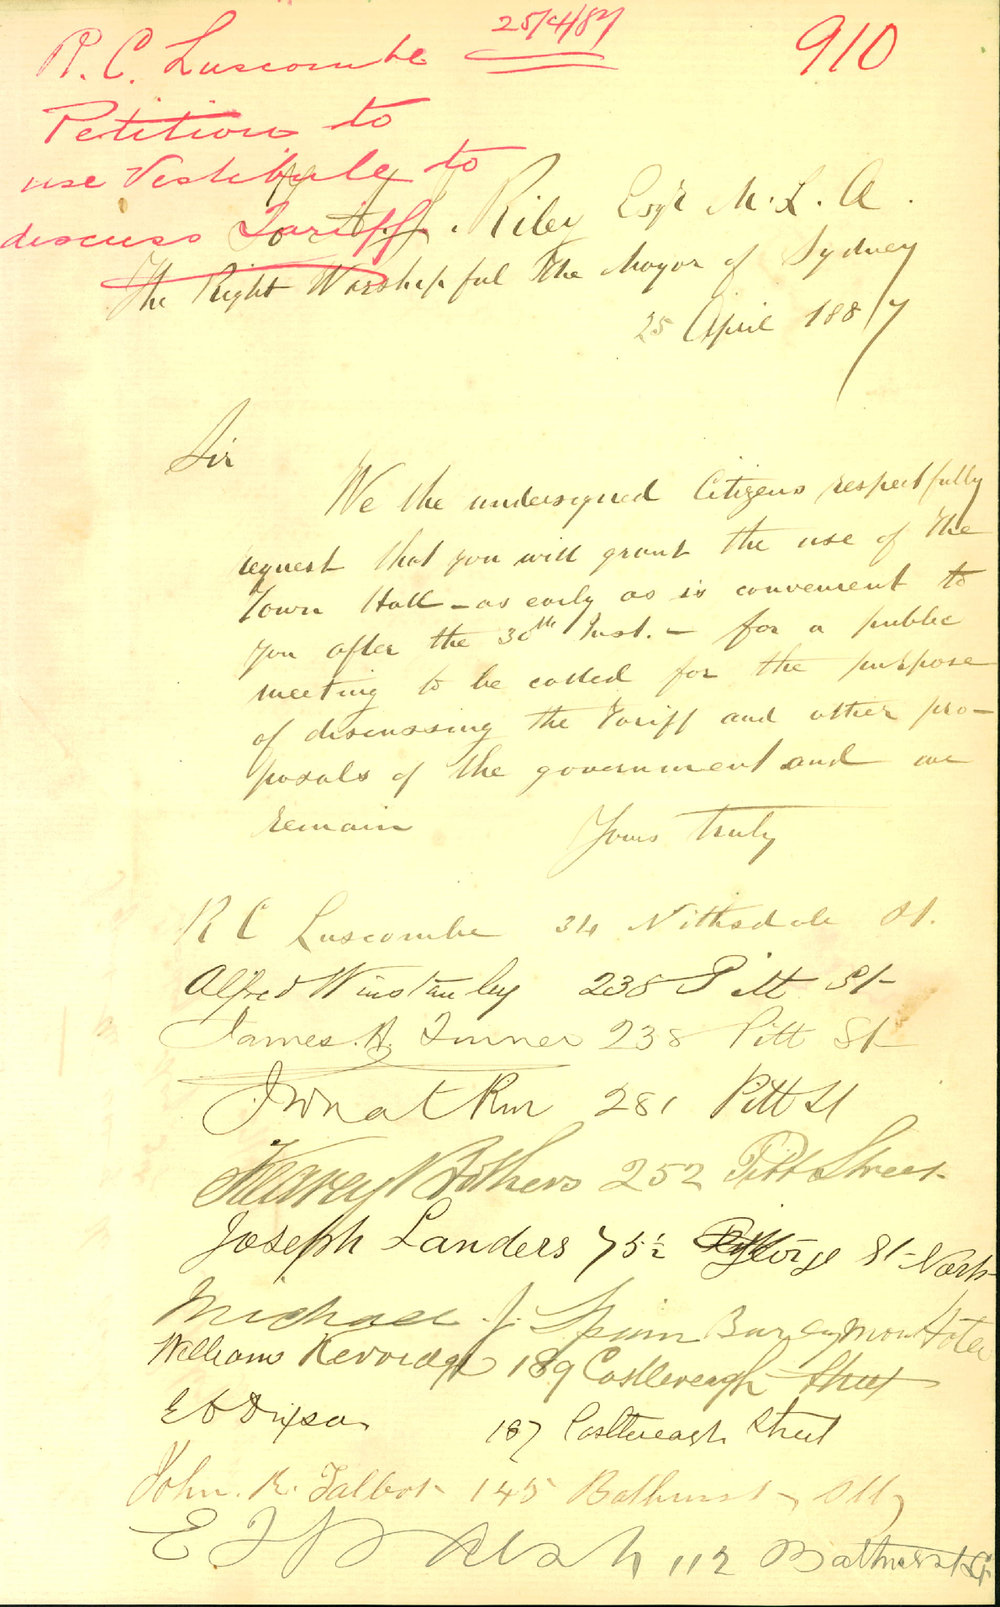 25/4/87
910
R. C. Luscombe
Petition to
use Vestibule to
discuss Tariff
To A. J. Riley Esqr M.L.A.
The Right Worshipful The Mayor of Sydney
25 April 1887
Sir
We the undersigned Citizens respectfully
request that you will grant the use of the
Town Hall – as early as is convenient to
you after the 30th Inst. – for a public
meeting to be called for the purpose
of discussing the Tariff and other pro–
posals of the government and we
remain
Yours truly
R C Luscombe 34 Nithsdale St.
Alfred Winstanley 238 Pitt St
James. A. Turner 238 Pitt St
281 Pitt St
Brothers 252 Pitt Street
Joseph Landers 75½ George St North
Michael J. Spain Hotel
William 189 Castlereagh Street
E D Dixson 187 Castlereagh Street
John. R. Talbot 145 Bathurst St
E J Walsh 112 Bathurst St